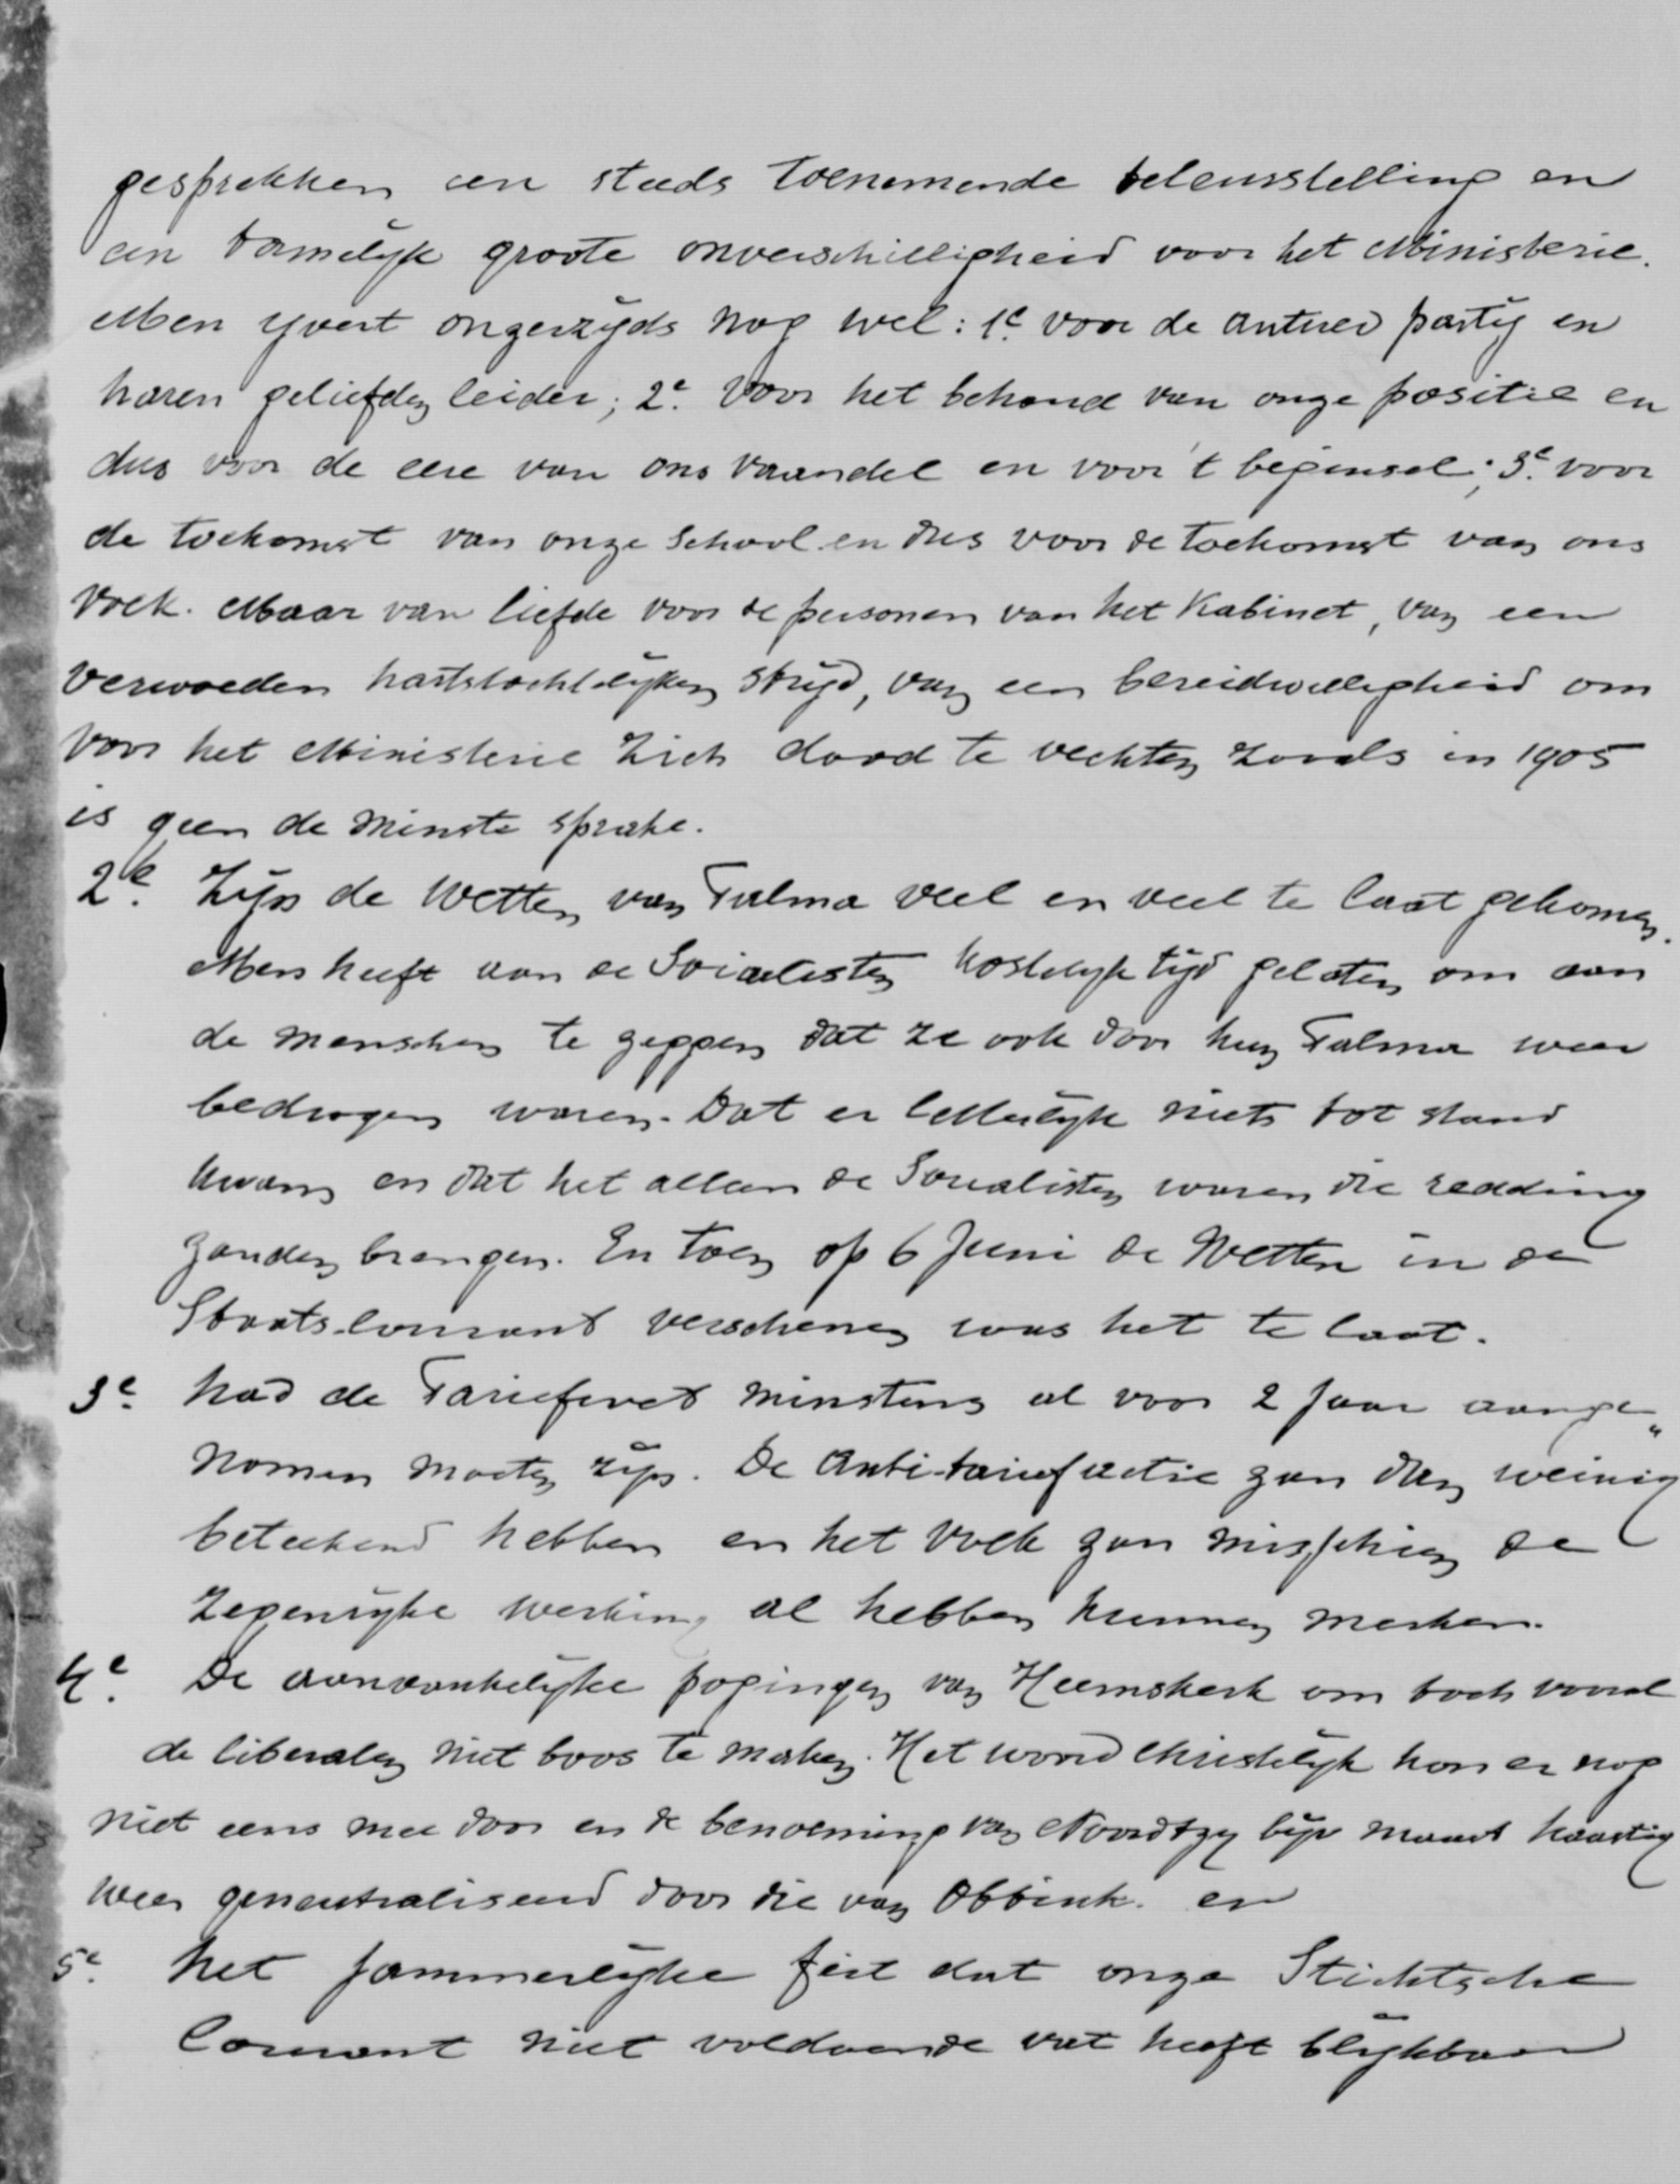 gesprekken een steeds toenemende teleurstelling en
een tamelijk groote onverschilligheid voor het Ministerie.
Men yvert onzerzijds nog wel: 1e. voor de antirev partij en
haren geliefden leider; 2e. voor het behoud van onze positie en
dus voor de eere van ons vaandel en voor 't beginsel; 3e. voor
de toekomst van onze School en dus voor de toekomst van ons
volk. Maar van liefde voor de personen van het Kabinet, van een
verwoeden hartstochtelijken strijd, van een bereidwilligheid om
voor het Ministerie zich dood te vechten zooals in 1905
is geen de minste sprake.
2e. Zijn de Wetten van Talma veel en veel te laat gekomen.
Men heeft aan de Socialisten kostelijk tijd gelaten om aan
de menschen te zeggen dat ze ook door hun Talma weer
bedrogen waren. Dat er letterlijk niets tot stand
kwam en dat het alleen de Socialisten waren die redding
zouden brengen. En toen op 6 Juni de Wetten in de
Staats-courant verschenen was het te laat.
3e. had de Tariefwet minstens al voor 2 Jaar aange„
nomen moeten zijn. De Anti-tariefactie zou dan weinig
beteekend hebben en het Volk zou misschien de
zegenrijke werking al hebben kunnen merken.
4e. De aanvankelijke pogingen van Heemskerk om toch vooral
de liberalen niet boos te maken. Het woord Christelijk kon er nog
niet eens mee door en de benoeming van Noordtzy bijv moest haastig
weer geneutraliseerd door die van Obbink. en
5e. het jammerlijke feit dat onze Stichtsche
Courant niet voldoende vat heeft blijkbaar